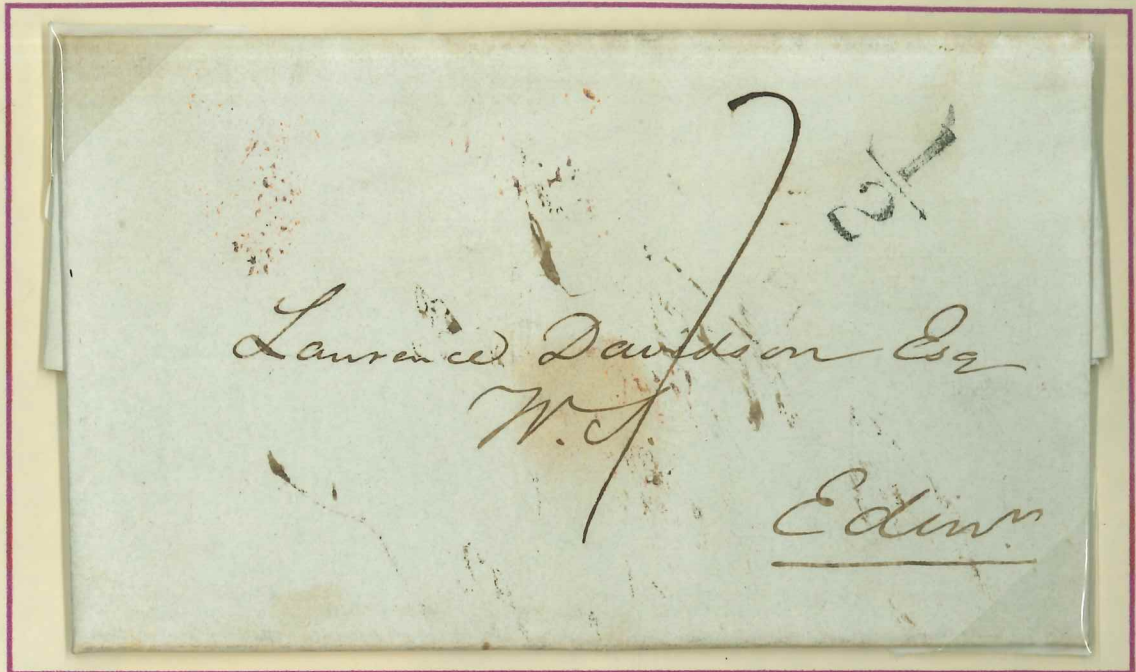 7
1/2
Lawrence Davidson Esq
W.S.
Edinr